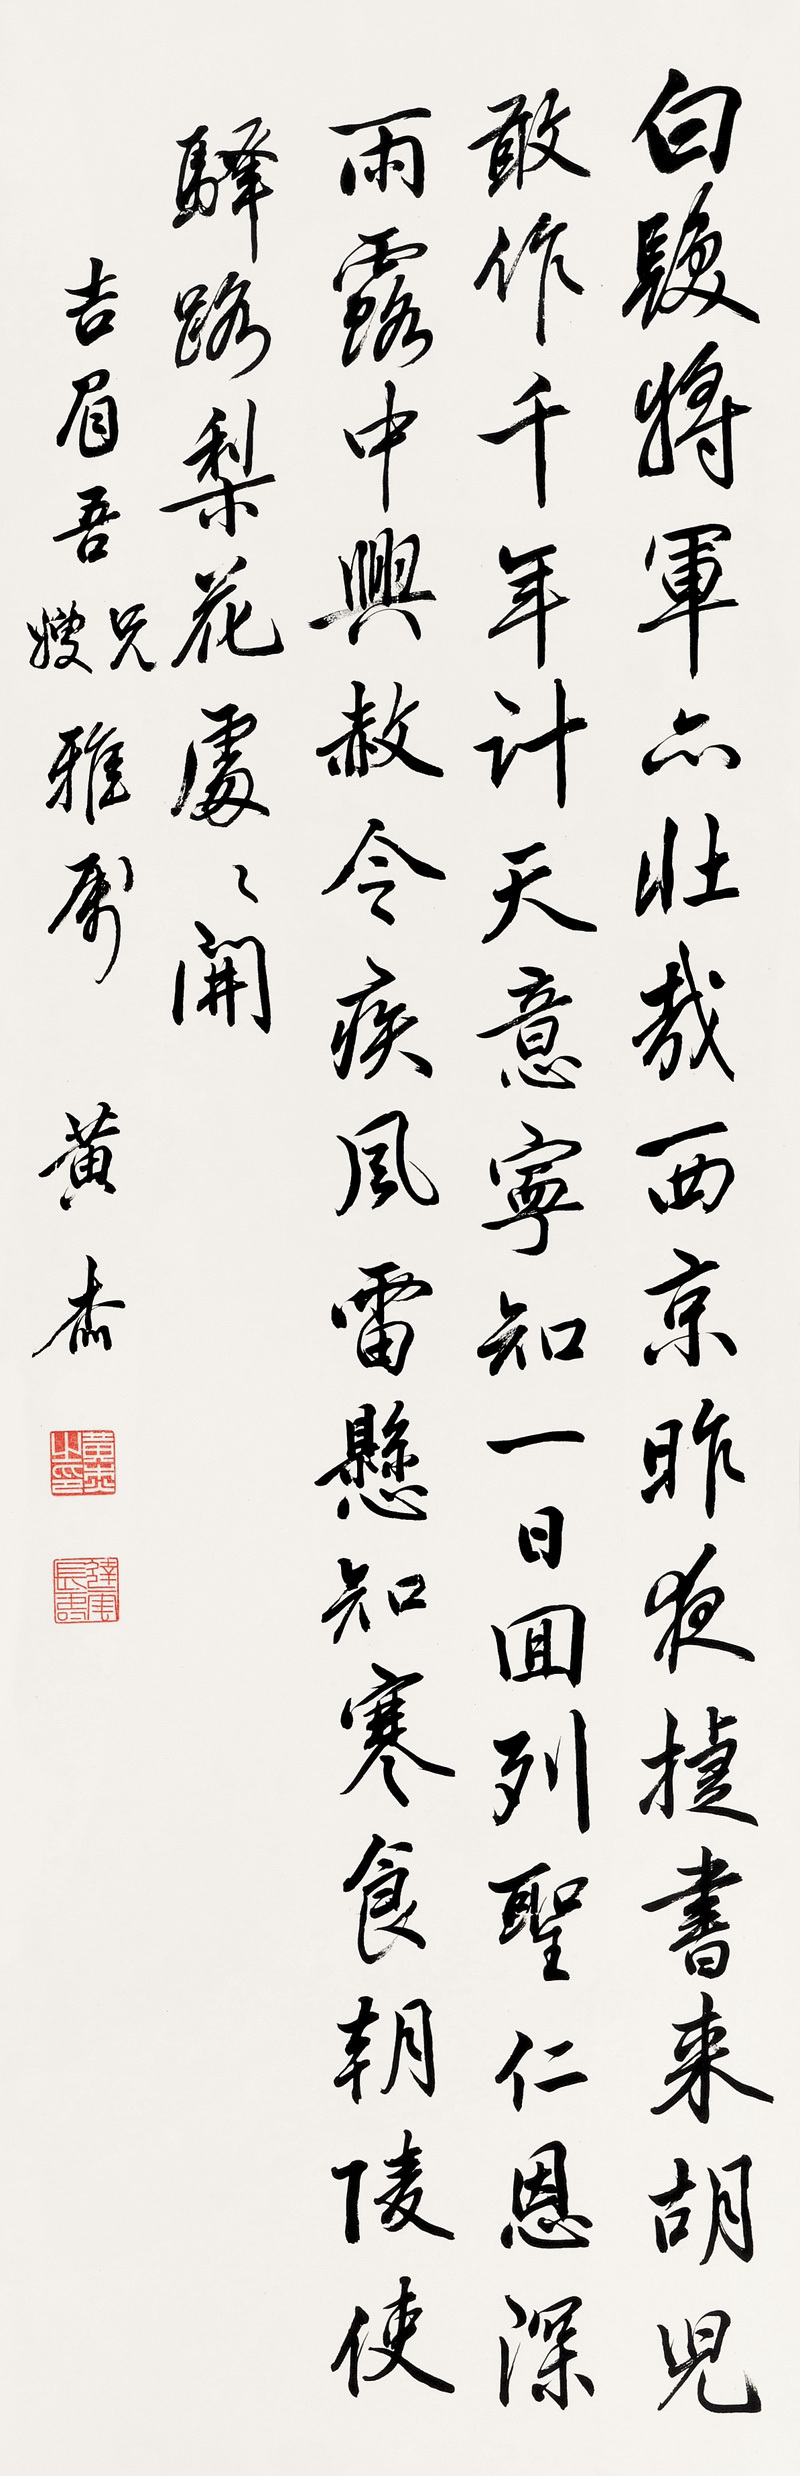 白髮將軍亦壯哉西京昨夜捷書来胡兒
敢作千年計天意寧知一日回列聖仁恩深
雨露中興赦令疾風雷懸知寒食朝陵使
驛路梨花處々開
吉眉吾兄嫂雅屬
黃杰
黃杰之印
達雲長壽